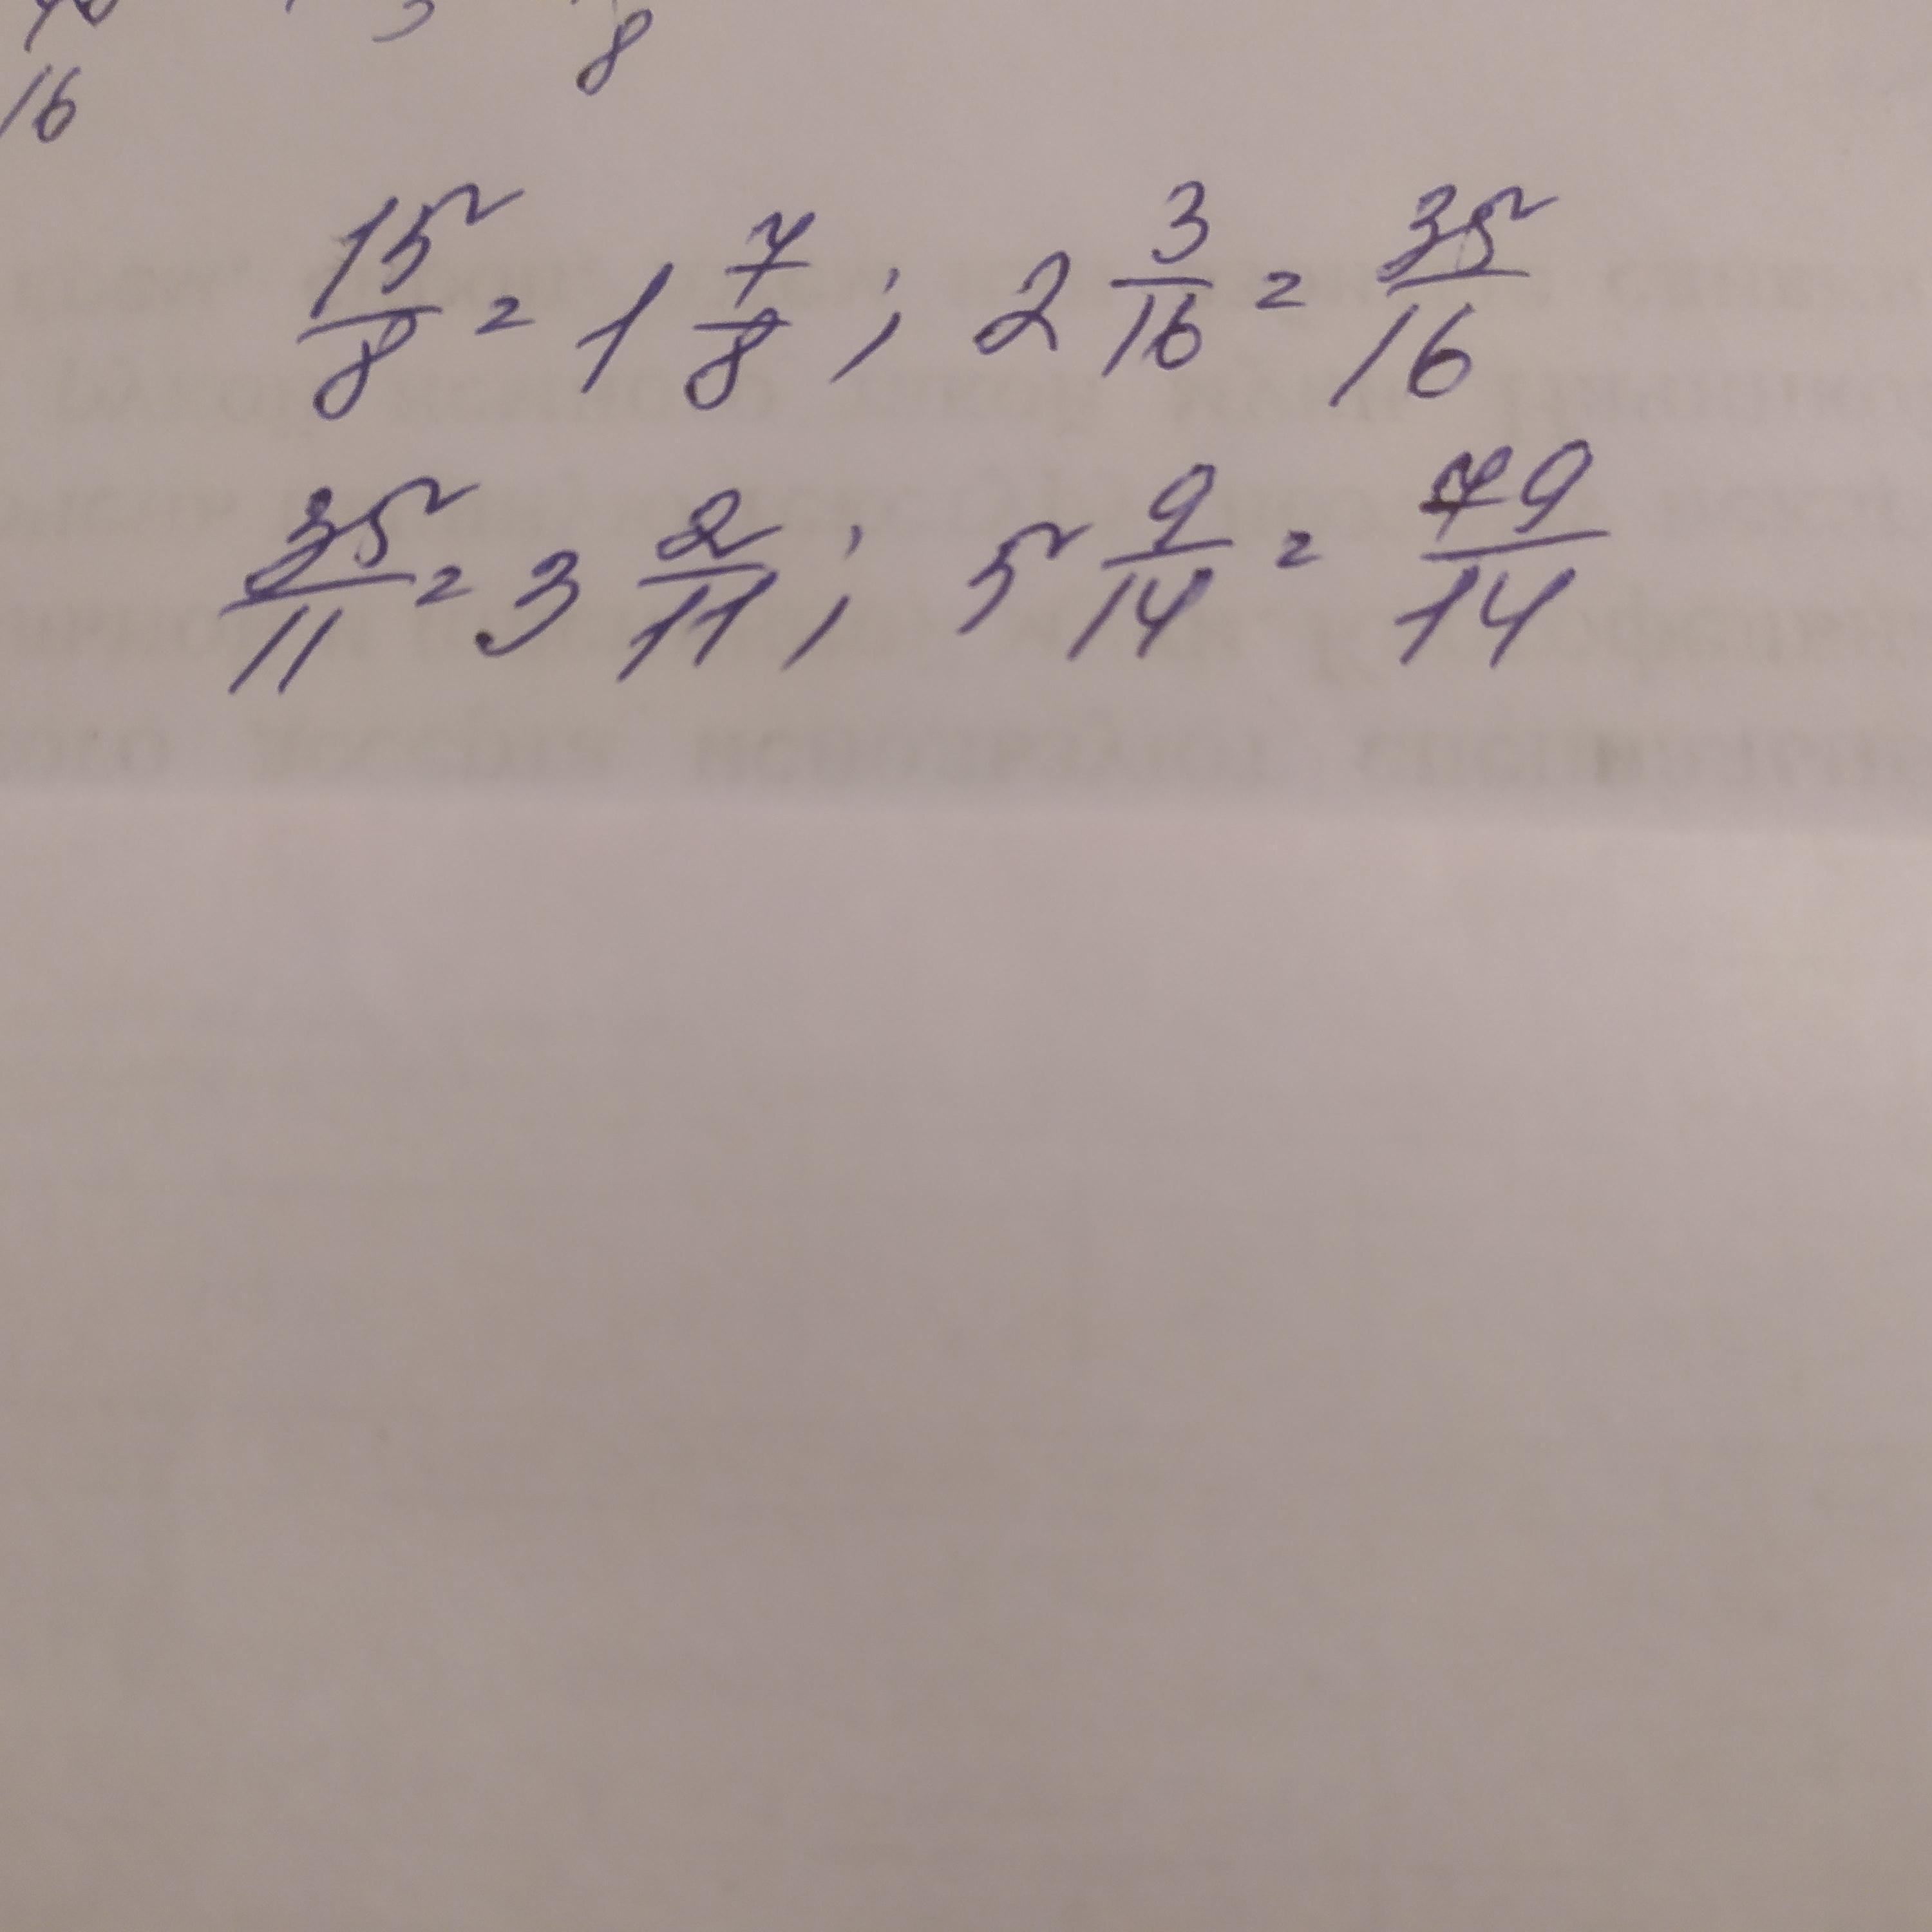 8
16
15/8 = 1 7/8 ; 2 3/16 = 35/16
35/11 = 3 2/11 ; 5 9/14 = 79/14